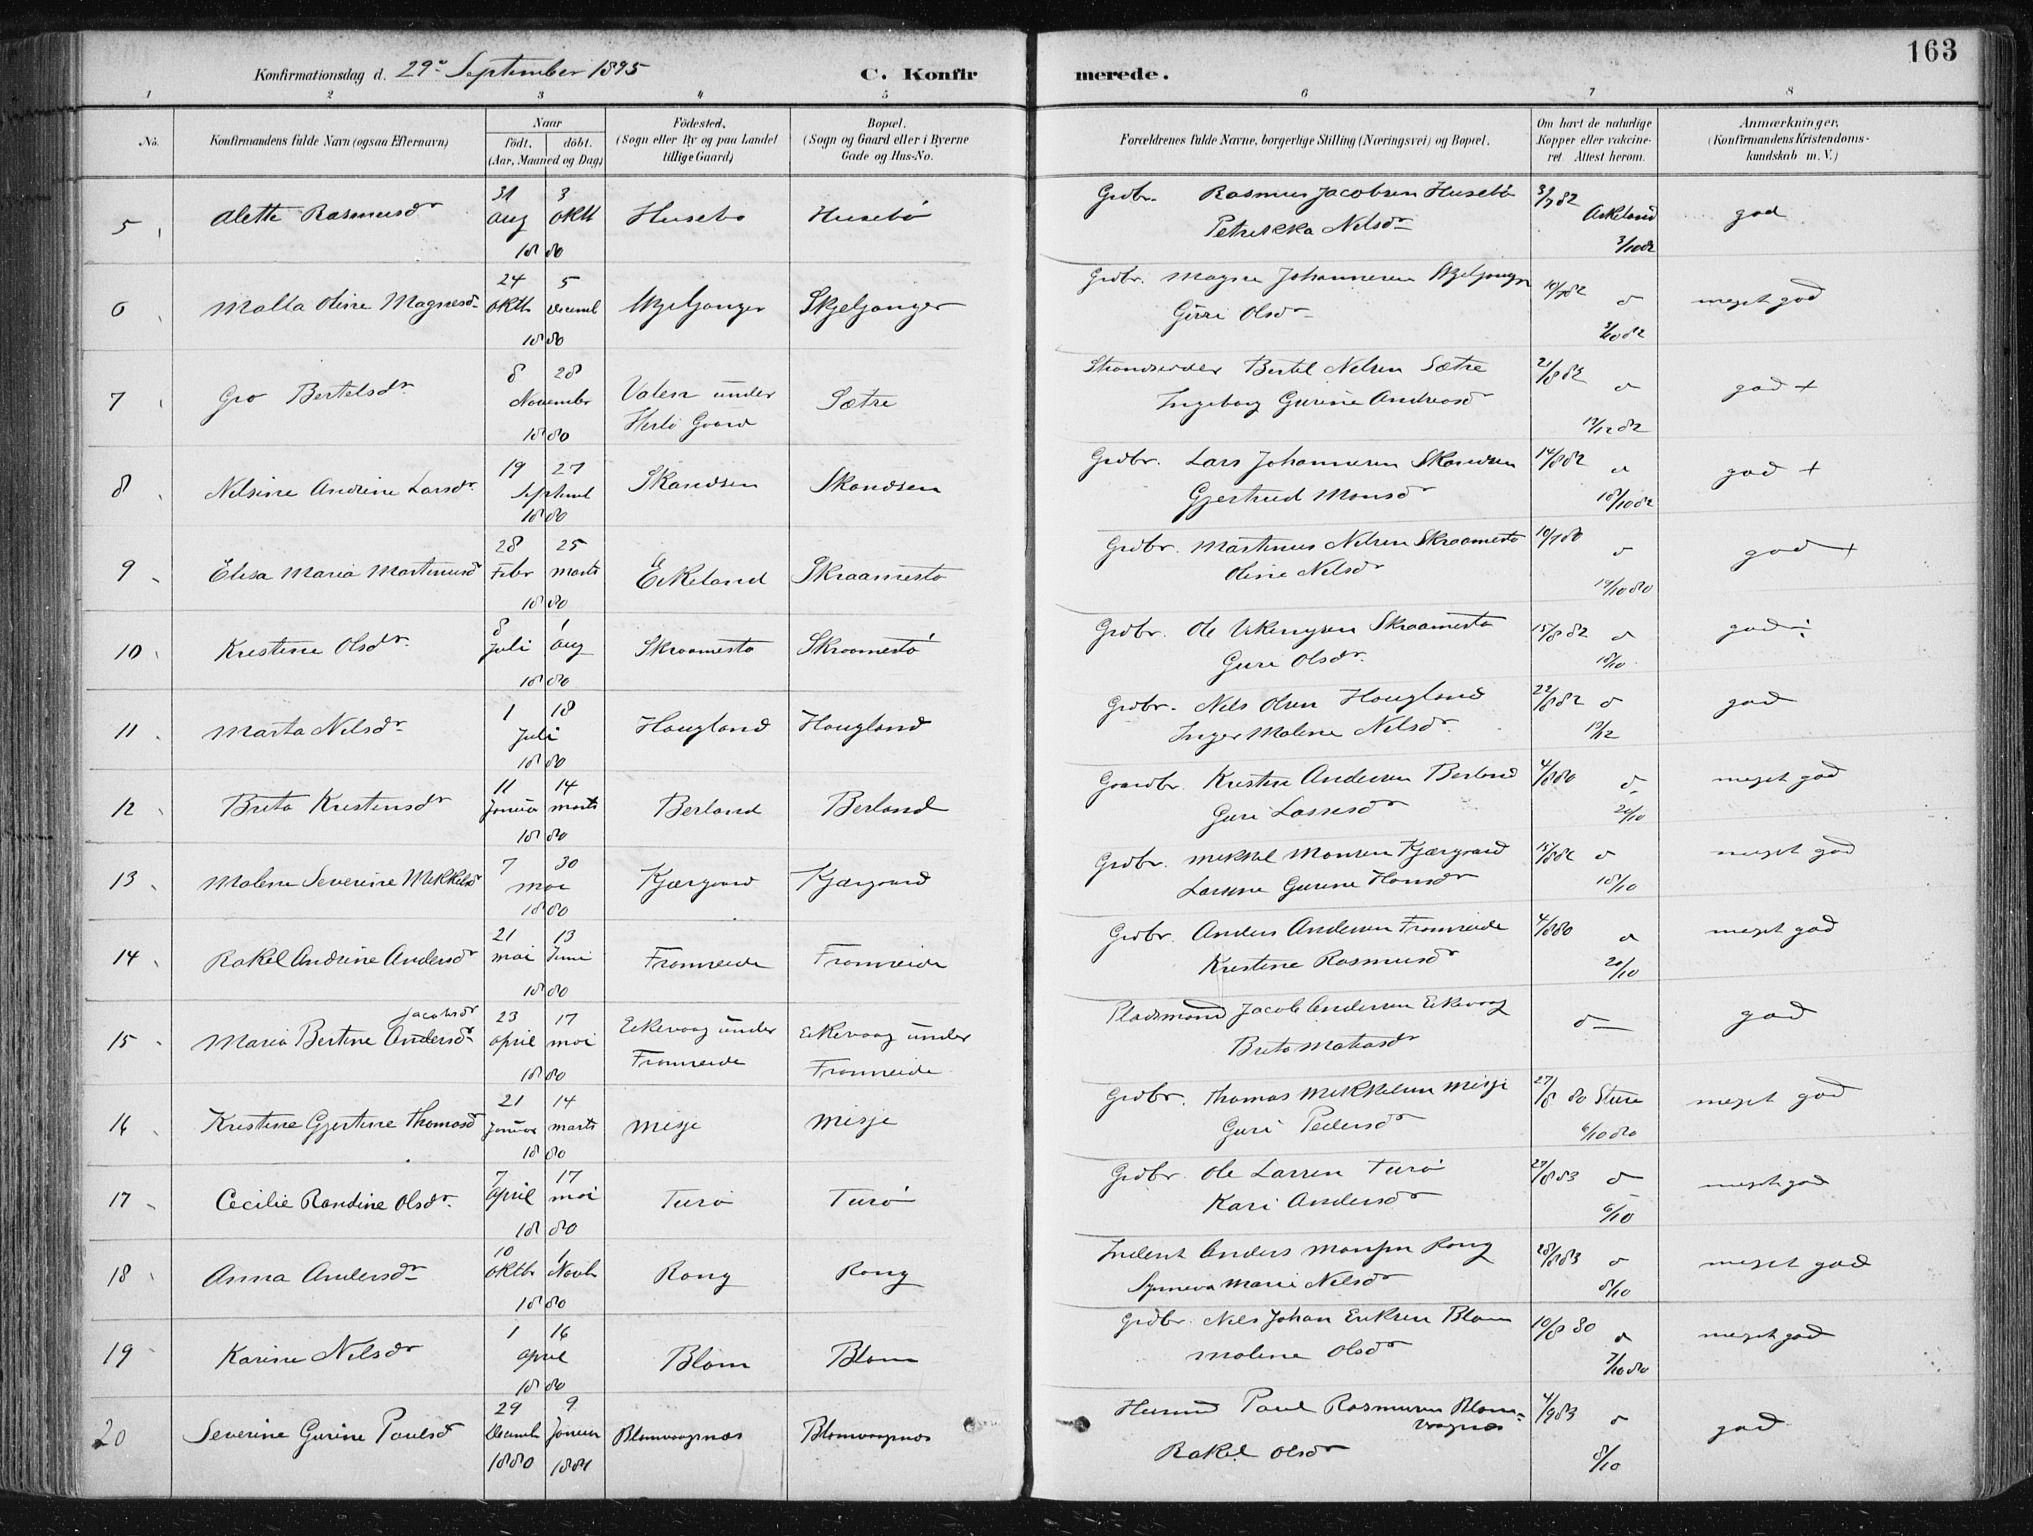 163
Konfirmationsdag d. 29de September 1895 C. Konfirmerede.
1 2 3 4 5 6 7 8
No. Konfirmandens fulde Navn (ogsaa Efternavn) Naar født, døbt. (Aar, Maaned og Dag) Fødested, (Sogn eller By og paa Landet tillige Gaard) Bopæl. (Sogn og Gaard eller i Byerne Gade og Hus-No. Forældrenes fulde Navne, borgerlige Stilling (Næringsvei) og Bopæl. Om havt de naturlige Kopper eller vakcineret. Attest herom. Anmærkninger. (Konfirmandens Kristendomskundskab m. V.)
5 Alette Rasmusdr 31 Aug 3 Oktb 1880 Husebø Husebø Grdbr. Rasmus Jacobsen Husebø Petrikka Nelsdr 3/7 82 Askeland 3/10 82 god
6 Malla Oline Magnesdr 24 Oktb 5 Decemb 1880 Skjeljanger Skjeljanger Grdbr. Magne Johannesen Skjeljanger Guri Olsdr 10/7 82 d 3/10 82 meget god
7 Gro Bertelsdr. 8 28 November 1880 Valen under Herlø Gaard Sætre Strandsidder Bertel Nelsen Sætre Ingeborg Gurine Andreasdr 21/8 82 d 12/12 82 god +
8 Nelsine Andrine Larsdr. 19 27 Septemb 1880 Skandsen Skandsen Grdbr. Lars Johannesen Skandsen Gjertrud Monsdr 14/8 82 d 18/10 82 god +
9 Elisa Maria Martinusdr 28 Febr 25 Marts 1880 Eikeland Skraamestø Grdbr. Martinus Nelsen Skraamestø Oline Nelsdr 10/7 80 d 19/10 80 god +
10 Kristine Olsdr. 8 Juli 1 Aug 1880 Skraamestø Skraamestø Grdbr. Ole Skraamestø Guri Olsdr. 15/8 82 d 18/10 god
11 Marta Nelsdr 1 18 Juli 1880 Haugland Haugland Grdbr. Nels Olsen Haugland Inger Malene Nelsdr. 22/8 82 d 12/12 god
12 Brita Kristensdr 11 Januar 14 Marts 1880 Berland Berland Gaardbr. Kristen Andersen Berland Guri Lassesdr 4/8 80 d 20/10 meget god
13 Malene Severine Mikkelsdr 7 30 Mai 1880 Kjærgaard Kjærgaard Grdbr. Mikkel Monsen Kjærgaard Larsine Gurine Hansdr 15/8 82 d 18/10 meget god
14 Rakel Andrine Andersdr 21 Mai 13 Juni 1880 Fromreide Fromreide Grdbr. Anders Andersen Fromreide Kristine Rasmusdr 4/8 80 d 20/10 meget god
15 Maria Bertine Andersdr Jacobsdr 23 April 17 Mai 1880 Eikevaag under Fromreide Eikevaag under Fromreide Pladsmand Jacob Andersen Eikevaag Brita Matiasdr d god
16 Kristine Gjertine Thomasdr 21 Januar 14 Marts 1880 Misje Misje Grdbr. Thomas Mikkelsen Misje Guri Pedersdr 27/8 80 Sture 6/10 80 meget god
17 Cecilie Randine Olsdr. 7 April 17 Mai 1880 Turø Turø Grdbr. Ole Larsen Turø Kari Andersdr 29/8 83 d 6/10 meget god
18 Anna Andersdr 10 Oktb 1 Novb 1880 Rong Rong Inderst Anders Monsen Rong Synneva Marie Nelsdr 28/8 83 d 8/10 meget god
19 Karine Nelsdr 1 16 April 1880 Blom Blom Grdbr. Nels Johan Eriksen Blom Malene Olsdr 10/8 80 d 7/10 80 meget god
20 Severine Gurine Paulsdr 29 Decemb 1880 9 Januar 1881 Blomvaagnæs Blomvaagnæs Husmd Paul Rasmusen Blomvaagnæs Rakel Olsdr 4/9 83 d 8/10 god